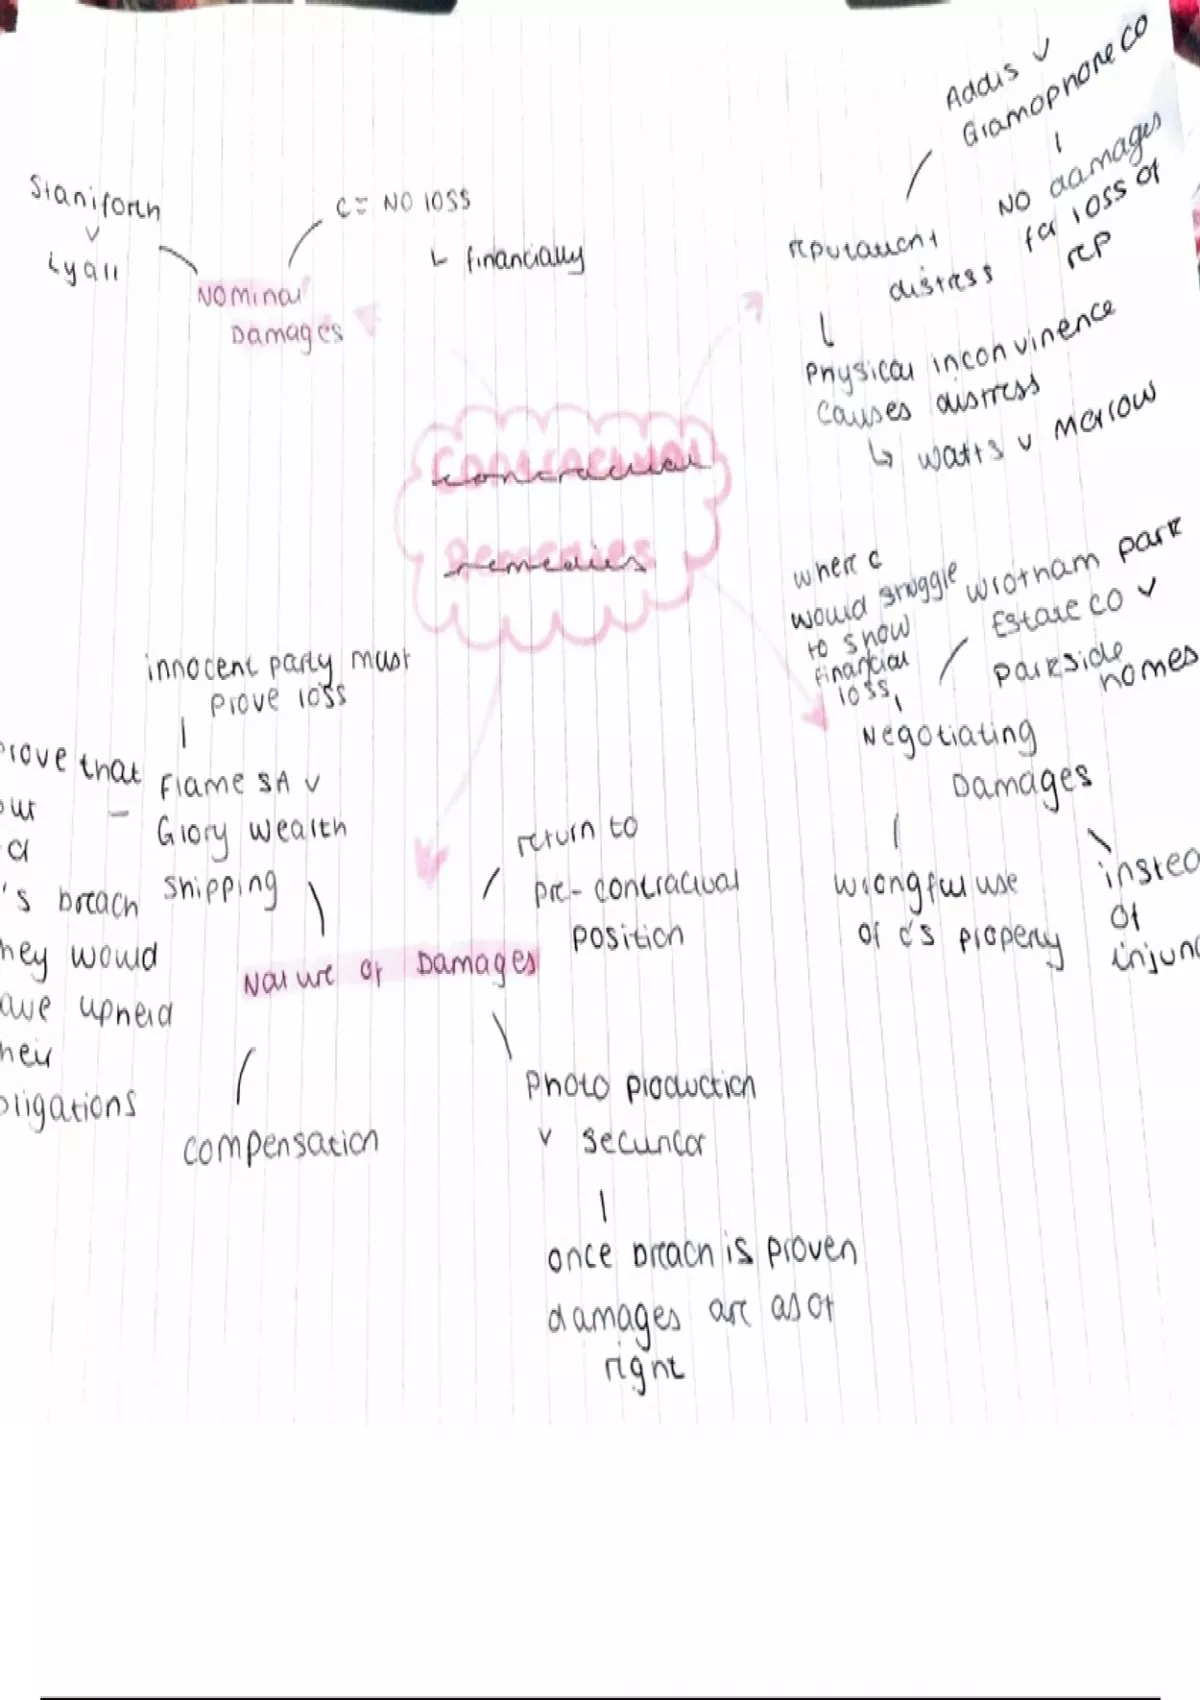 Contractual
Remedies
Nominal
Damages
Staniforth
v
Lyall
C = NO loss
↳ financially
distress
Addis v
Gramophone CO
NO damages
for loss of
rep
Physical inconvinence
causes distress
↳ Watts v Morrow
Negotiating
Damages
where c
would struggle
to show
financial
loss
Wrotham park
Estate CO v
parkside
homes
wrongful use
of c's property
of
Nature of Damages
innocent party must
prove loss
Flame SA v
Glory Wealth
Shipping
that
's breach
would
upheld
return to
pre-contractual
position
compensation
Photo production
v Securicor
once breach is proven
damages are as of
right